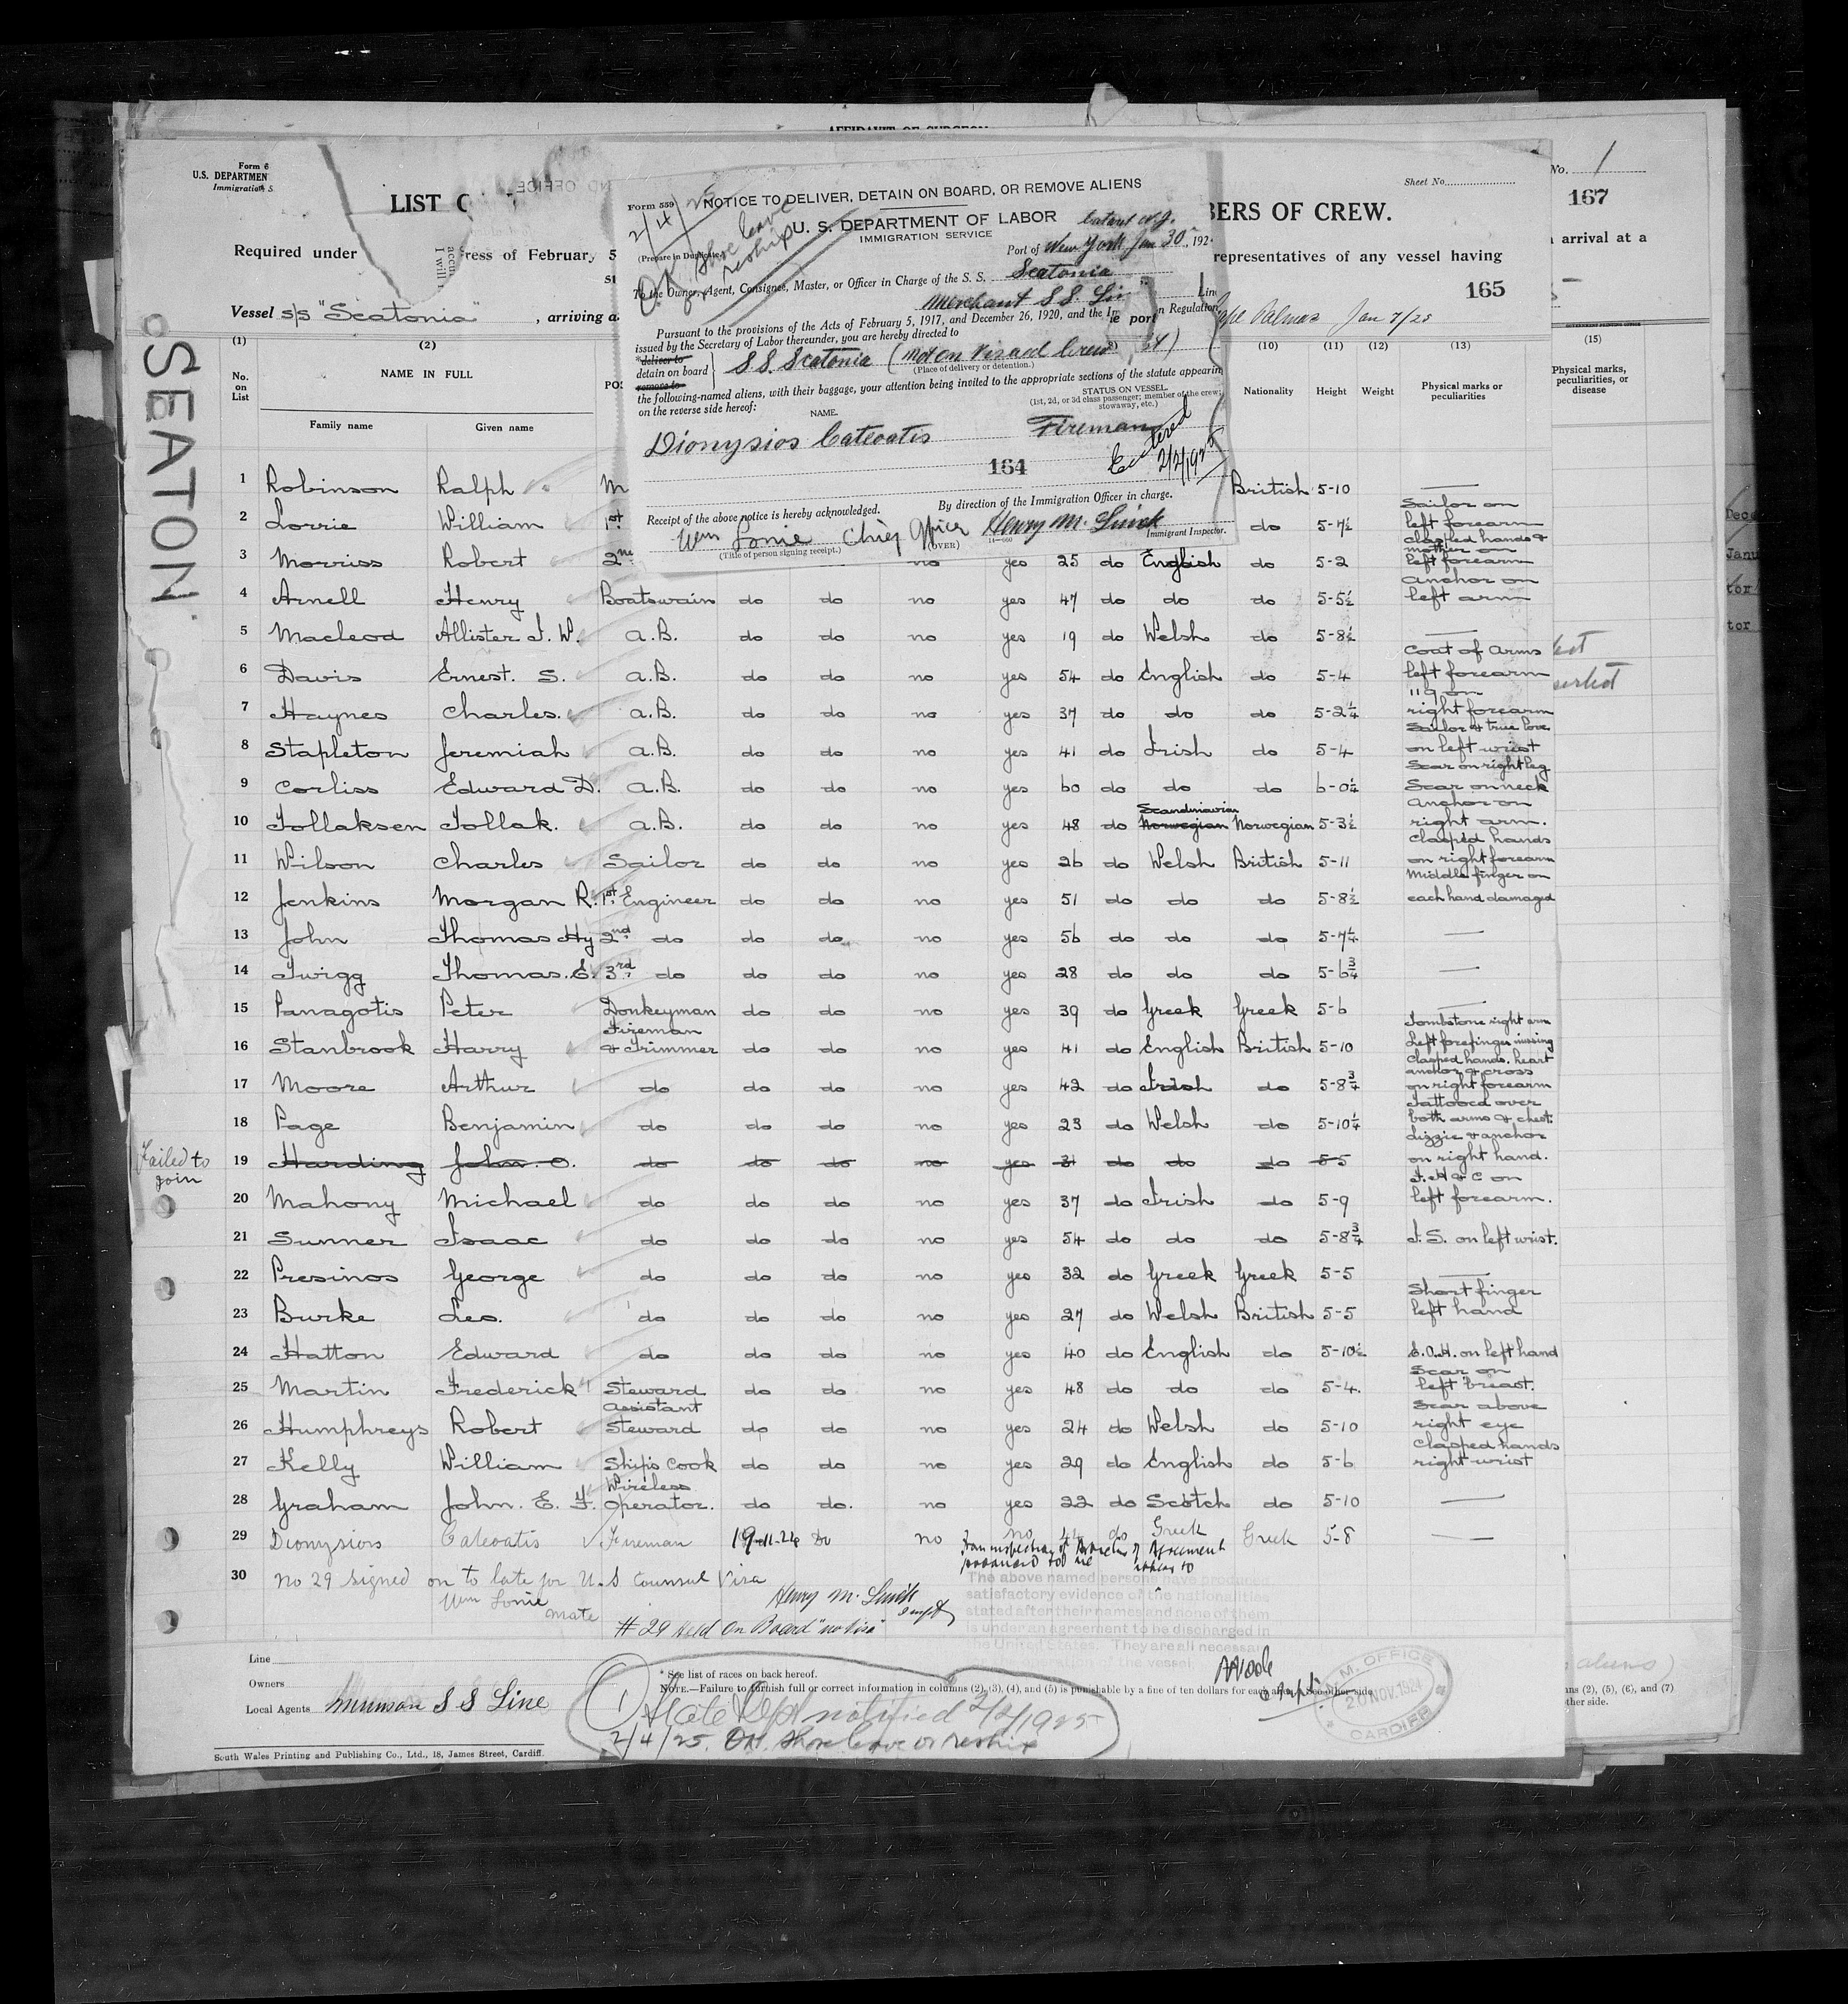 AFFIDAVIT OF SURGEON
Form 6
U.S. DEPARTMEN
Immigration S
LIST O
BERS OF CREW.
Sheet No.
No. 1
167
Required under
ress of February 5
representatives of any vessel having
arrival at a
165
Vessel s/s "Seatonia" , arriving a
Jan 7/25
SEATON
Form 559
NOTICE TO DELIVER, DETAIN ON BOARD, OR REMOVE ALIENS
U. S. DEPARTMENT OF LABOR
IMMIGRATION SERVICE
2/4
OK shore leave
reship
(Prepare in Duplicate.)
Port of New York Jan 30, 192
To the Owner, Agent, Consignee, Master, or Officer in Charge of the S. S. Seatonia
Merchant S S. Lin
Line
Pursuant to the provisions of the Acts of February 5, 1917, and December 26, 1920, and the Im
n Regulation
e port
issued by the Secretary of Labor thereunder, you are hereby directed to
*deliver to
detain on board
remove to
S.S. Seatonia (Not on Visaed Crew
(Place of delivery or detention.)
the following-named aliens, with their baggage, your attention being invited to the appropriate sections of the statute appearin
on the reverse side hereof:
NAME.
STATUS ON VESSEL
(1st, 2d, or 3d class passenger; member of the crew;
stowaway, etc.)
Dionysios Cateoatis Fireman
Entered
2/2/1925
164
By direction of the Immigration Officer in charge.
Receipt of the above notice is hereby acknowledged.
Wm Lonie Chief Officer
Henry M. Smith
Immigrant Inspector.
(Title of person signing receipt.)
(OVER)
(1) (2) (10) (11) (12) (13) (15)
No. on List
NAME IN FULL
Family name Given name
Nationality Height Weight Physical marks or peculiarities
Physical marks, peculiarities, or disease
1 Robinson Ralph M British 5-10 —
2 Lorrie William 1st do 5-7½ Sailor on left forearm
3 Morriss Robert 2nd no yes 25 do English do 5-2 Clasped hands & mother on left forearm
4 Arnell Henry Boatswain do do no yes 47 do do do 5-5½ Anchor on left arm
5 Macleod Allister J. W. A.B. do do no yes 19 do Welsh do 5-8½ —
6 Davis Ernest. S. A.B. do do no yes 54 do English do 5-4 Coat of Arms left forearm
7 Haynes Charles. A.B. do do no yes 37 do do do 5-2¼ 119 on right forearm
8 Stapleton Jeremiah A.B. do do no yes 41 do Irish do 5-4 Sailor & true love on left wrist
9 Corliss Edward D. A.B. do do no yes 60 do do do 6-0¼ Scar on right leg Scar on neck
10 Tollaksen Tollak. A.B. do do no yes 48 do Norwegian Scandinavian Norwegian 5-3½ Anchor on right arm.
11 Wilson Charles Sailor do do no yes 26 do Welsh British 5-11 Clasped hands on right forearm
12 Jenkins Morgan R. 1st Engineer do do no yes 51 do do do 5-8½ Middle finger on each hand damaged
13 John Thomas Hy 2nd do do do no yes 56 do do do 5-7¼ —
14 Twigg Thomas. E. 3rd do do do no yes 28 do do do 5-6¾ —
15 Panagotis Peter Donkeyman do do no yes 39 do Greek Greek 5-6 —
16 Stanbrook Harry Fireman & Trimmer do do no yes 41 do English British 5-10 Tombstone right arm Left forefinger missing
17 Moore Arthur do do do no yes 42 do Irish do 5-8¾ Clasped hands. heart anchor & cross on right forearm
18 Page Benjamin do do do no yes 23 do Welsh do 5-10¼ Tattooed over both arms & chest.
Failed to join
19 Harding John. O. do do do no yes 31 do do do 5-5 Lizzie & anchor on right hand.
20 Mahony Michael do do do no yes 37 do Irish do 5-9 J. H & C on left forearm.
21 Sunner Isaac do do do no yes 54 do do do 5-8¾ J. S. on left wrist.
22 Presinos George do do do no yes 32 do Greek Greek 5-5 —
23 Burke Leo. do do do no yes 27 do Welsh British 5-5 Short finger left hand
24 Hatton Edward do do do no yes 40 do English do 5-10½ E.O.H. on left hand
25 Martin Frederick Steward do do no yes 48 do do do 5-4. Scar on left breast.
26 Humphreys Robert Assistant Steward do do no yes 24 do Welsh do 5-10 Scar above right eye
27 Kelly William Ship's Cook do do no yes 29 do English do 5-6 Clasped hands right wrist
28 Graham John. E. F. Wireless Operator. do do. no yes 22 do Scotch do 5-10 —
29 Dionysios Cateoatis Fireman 19-11-24 Do no no 44 do Greek Greek 5-8 —
From inspection of Articles of Agreement
produced to me
30 No 29 signed on to late for U.S Counsul Visa
Wm Lonie
mate
Henry M. Smith
Inspt
The above named persons have produced
satisfactory evidence of the nationalities
stated after their names and none of them
is under an agreement to be discharged in
the United States. They are all necessary
of the vessel.
# 29 Held On Board "no visa"
Line
Owners
Local Agents Munson S S Line
* See list of races on back hereof.
NOTE.—Failure to furnish full or correct information in columns (2), (3), (4), and (5) is punishable by a fine of ten dollars for each alien. See other side.
ns (2), (5), (6), and (7)
ther side.
aliens)
1 State Dept notified 2/2/1925
2/4/25. OK shore leave or reship
M. OFFICE
20 NOV. 1924
CARDIFF
South Wales Printing and Publishing Co., Ltd., 18, James Street, Cardiff.